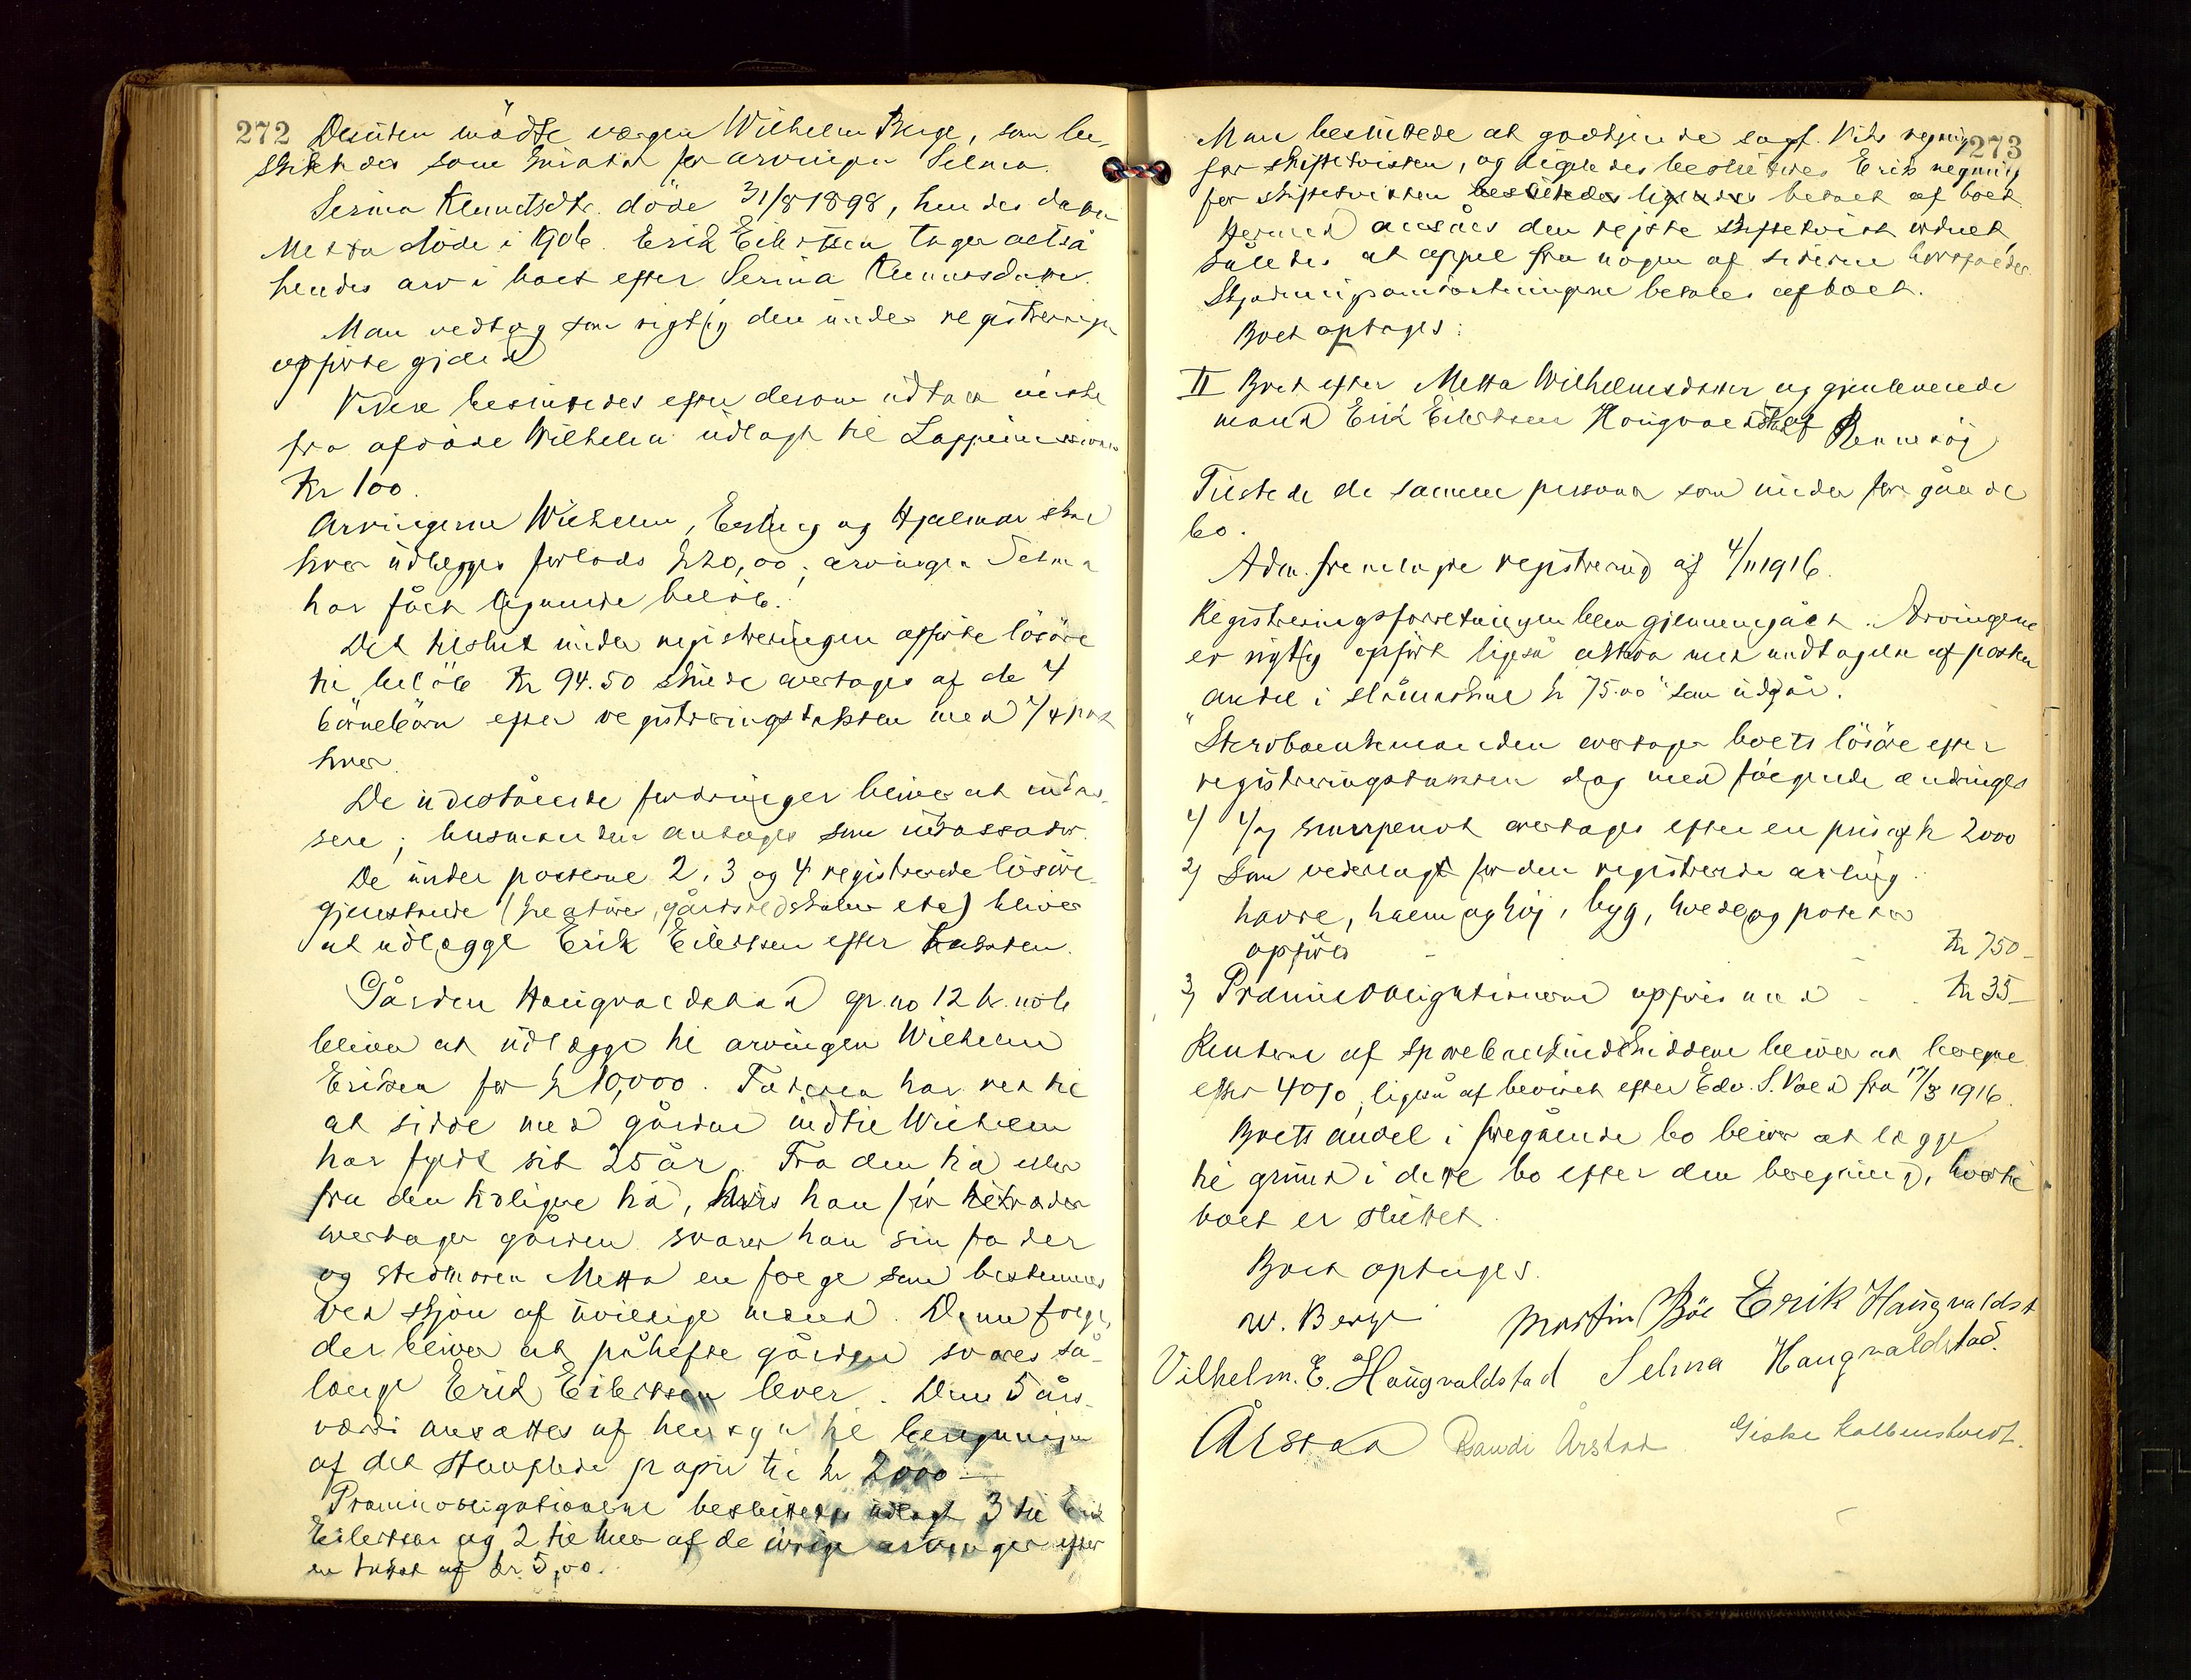 272
Desuten mødte værgen Wilhelm Berge, som be-
skikkedes som kurator for arvingen Selma.
Serina Knudtsdtr. döde 31/8 1898, hendes datter
Metta döde i 1906. Erik Eilertsen tager altså
hendes arv i boet efter Serina Knutsdatter.
Man vedtog som rigtig den under registreringen
opførte gjæld
Videre besluttedes efter derom udtalt ønske
fra afdøde Wilhelm udlagt til Lappemissionen
Kr 100.
Arvingerne Wilhelm, Erling og Hjalmar skal
hver udlægges forlods kr 20,00; arvingen Selma
har fået lignende beløb.
Det tilslut under registreringen opførte lösöre
til beløb Kr 94.50 skulde overtages af de 4
börnebörn efter registreringstaksten med 1/4 part
hver.
De udestående fordringer bliver at indkas-
sere; husmanden antages som inkassator.
De under posterne 2, 3 og 4 registrerede lösöre-
gjenstande (kreaturer, gårdsredskaber etc) bliver
at udlægge Erik Eilertsen efter taksten.
Gården Haugvaldstad gr. no 12 br. no 6
bliver at udlægge til arvingen Wilhelm
Eriksen for kr 10,000. Faderen har ret til
at sidde med gården indtil Wilhelm
har fyldt sit 25 år. Fra den tid eller
fra den tidligere tid, hvis han før tiltræder
overtager gården svarer han sin fader
og stedmoren Metta en folge som bestemmes
ved skjön af uvillige mænd. Denne folge,
der bliver at påhefte gården svares så-
længe Erik Eilertsen lever. Dens 5 års-
værdi ansættes af hensyn til beregningen
af det stemplede papir til kr 2000 —
Præmieobligationerne besluttedes udlagt 3 til Erik
Eilertsen og 2 til hver af de övrige arvinger efter
en takst af kr. 5,00.
273
Man besluttede at godkjende sagf. Viks regning
for skiftetvisten, og ligeledes besluttedes Eriks regning
for skiftetvisten besluttedes ligeledes betalt af boet.
Hermed ansåes den rejste skiftetvist ordnet,
således at appel fra nogen af siderne bortfalder.
Skjönningsomkostningerne betales af boet.
Boet optages:
II Boet efter Metta Wilhelmsdatter og gjenlevende
mand Erik Eilertsen Haugvaldstad Rennesöy
Tilstede de samme personer som under foregående
bo.
Adm. fremlagde registrering af 4/11 1916.
Registreringsforretningen blev gjennemgået. Arvingerne
er rigtig opført ligeså aktiva med undtagelse af posten
"andel i slåmaskine kr 75.00" som udgår.
Sterboenkemanden overtager boets lösöre efter
registreringstaksten dog med følgende ændringer
1) 1/7 snurpenot overtages efter en pris af kr 2000
2) Som vederlag for den registrerede avling
havre, halm og höj, byg, hvede og poteter
opføres - - Kr 750 -
3) Præmieobligationerne opføres med - - Kr 35 -
Renterne af sparebankindskuddene bliver at beregne
efter 4 %, ligeså af beviset efter Edv. S. Vold fra 17/3 1916.
Boets andel i foregående bo bliver at lægge
til grund i dette bo efter den beregning, hvortil
boet er sluttet.
Boet optages.
W. Berge Martin Böe Erik Haugvaldst
Vilhelm. E. Haugvaldstad Selma Haugvaldstad.
Årstad Randi Årstad Giske Kolbenstvedt.